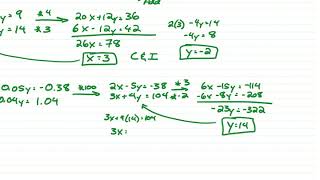 Add
y = 9 *4 20x + 12y = 36
y = 14 *3 6x - 12y = 42
26x = 78
x = 3
C & I
2(3) - 4y = 14
-4y = 8
y = -2
0.05y = -0.38 *100 2x - 5y = -38 *3 6x - 15y = -114
0.04y = 1.04 3x + 4y = 104 *-2 -6x - 8y = -208
-23y = -322
y = 14
3x + 4(14) = 104
3x =